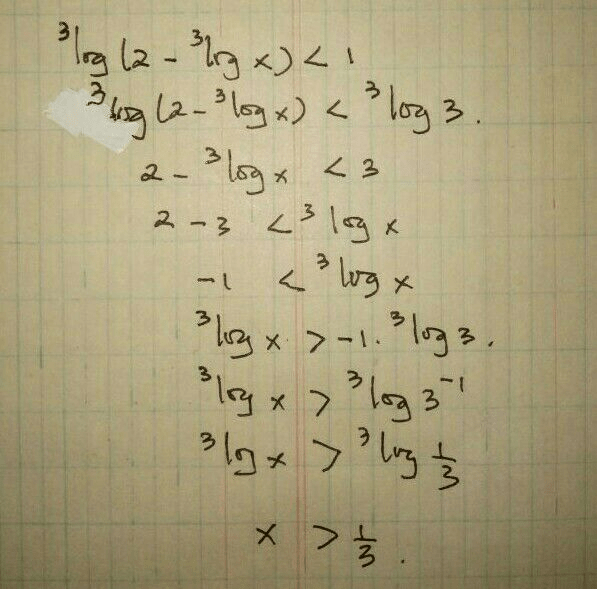 ³log (2 - ³log x) < 1
³log (2 - ³log x) < ³log 3.
2 - ³log x < 3
2 - 3 < ³log x
-1 < ³log x
³log x > -1. ³log 3.
³log x > ³log 3⁻¹
³log x > ³log 1/3
x > 1/3.